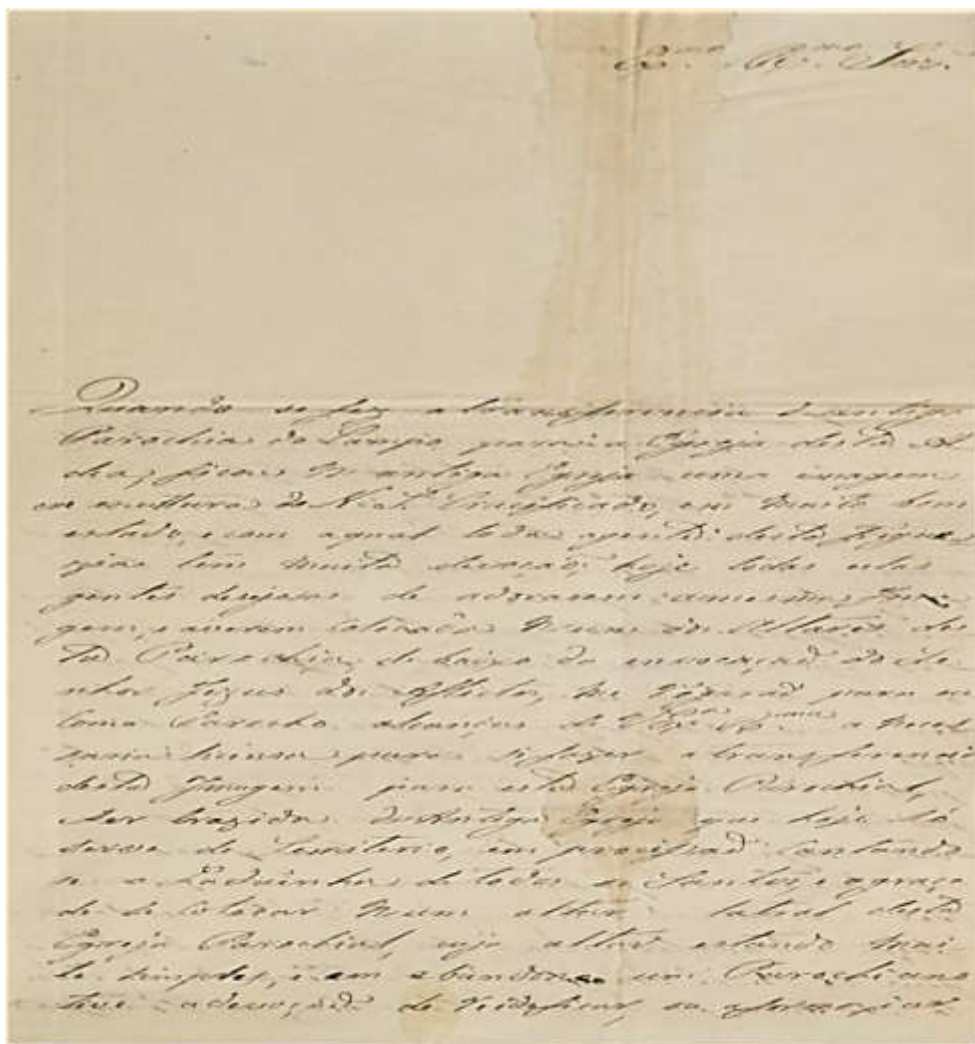 Ex.mo R.mo Snr.
Quando se fez a transferencia d'antiga
Parochia do Campo para a Egreja desta
ficou n'antiga Egreja uma imagem
em escultura do N. S. Crucificado, em muito bom
estado, e com a qual toda a gente desta Fregue
zia tem muita devoção; hoje todas estas
gentes desejosas de adorarem a mesma Ima
gem, e averem colocada n'um dos Altares des
ta Parochia, debaixo da invocação do Se
nhor Jezus dos Afflictos, me rogarão para eu
como Parocho alcançar de V. Ex.a R.ma a neces
saria licença para se fazer a transferencia
desta Imagem para esta Egreja Parochial,
ser trazida da Antiga Egreja que hoje só
serve de Cemiterio, em procissão cantando
se a Ladainha de todos os Santos, e a graça
de se colocar n'um altar lateral desta
Egreja Parochial, cujo altar estando mui
to simples, e em abandono um Parochiano
teve a devoção de reidificar, ou aformoziar